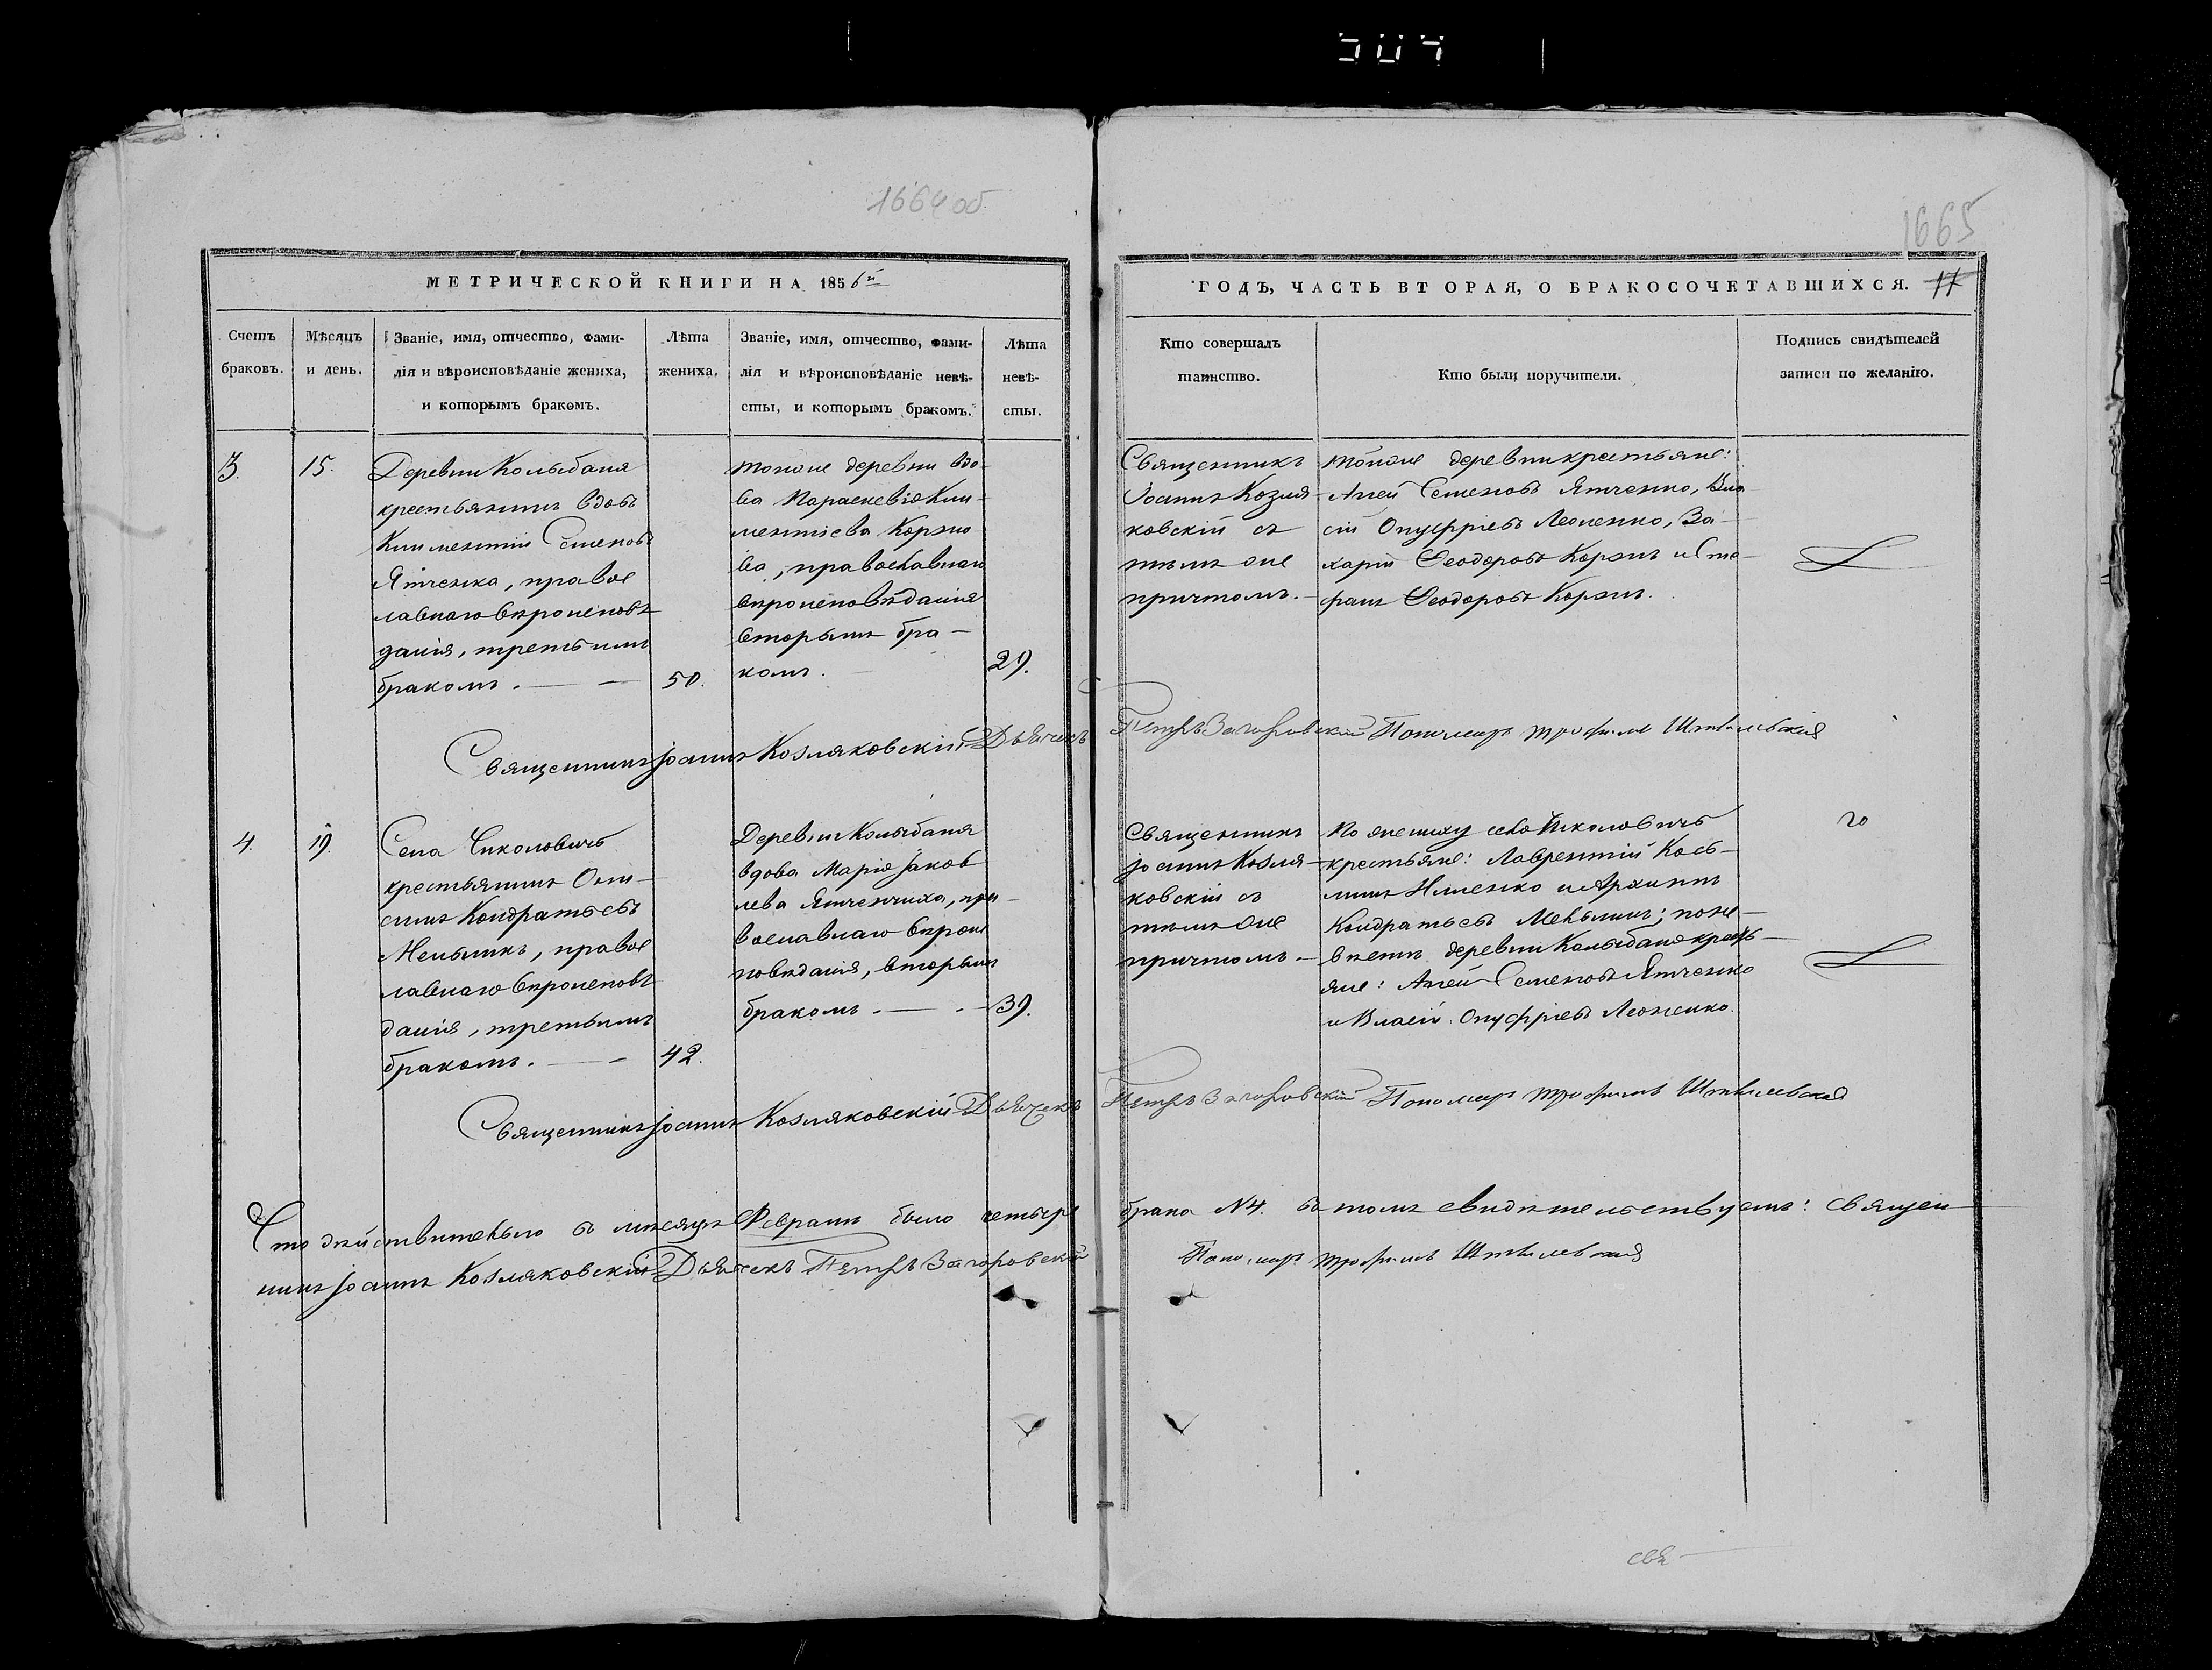 504
1664 об.
1665
МЕТРИЧЕСКОЙ КНИГИ НА 1856й
ГОДЪ, ЧАСТЬ ВТОРАЯ, О БРАКОСОЧЕТАВШИХСЯ. 11
Счетъ
браковъ.
Мѣсяцъ
и день.
Званіе, имя, отчество, фами-
лія и вѣроисповѣданіе жениха,
и которымъ бракомъ.
Лѣта
жениха.
Званіе, имя, отчество, фами-
лія и вѣроисповѣданіе невѣ-
сты, и которымъ бракомъ.
Лѣта
невѣ-
сты.
Кто совершалъ
таинство.
Кто были поручители.
Подпись свидѣтелей
записи по желанію.
3.
15.
Деревни Колыбаня
крестьянинъ вдовъ
Климентій Семеновъ
Ятченка, правос
лавнаго вѣроисповѣ
данія, третьимъ
бракомъ.
50.
тойже деревни вдо-
ва Параскевія Кли-
ментіева Коржо
ва, православнаго
вѣроисповѣданія
вторымъ бра-
комъ.
29.
Священникъ
Іоаннъ Козля-
ковскій съ
тѣмъ же
причтомъ.
тойже деревни крестьяне:
Алей Семеновъ Ятченко, Вла
сій Онуфріевъ Леоненко, За-
харій Ѳеодоровъ Коржъ и Сте-
фанъ Ѳеодоровъ Коржъ.
Священникъ Іоаннъ Козляковскій Дьячекъ Петръ Загоровскій Пономарь Трофимъ Штвилевскій
4.
19.
Села Чиколовичъ
крестьянинъ Они-
симъ Кондратьевъ
Мельникъ, правос
лавнаго вѣроисповѣ
данія, третьимъ
бракомъ.
42.
Деревни Колыбаня
вдова Марія Іаков
лева Ятченчиха, пра-
вославнаго вѣроис
повѣданія, вторымъ
бракомъ.
39.
Священникъ
Іоаннъ Козля-
ковскій съ
тѣмъ же
причтомъ.
По жениху села Чиколовичъ
крестьяне: Лаврентій Кось-
минъ Ильенко и Архипъ
Кондратьевъ Мельникъ; по не-
вѣстѣ деревни Колыбаня кресть-
яне: Алей Семеновъ Ятченко
и Власій Онуфріевъ Леоненко.
Священникъ Іоаннъ Козляковскій Дьячекъ Петръ Загоровскій Пономарь Трофимъ Штвилевскій
Что дѣйствительно въ мѣсяцѣ Февралѣ было четыре брака №4. въ томъ свидѣтельствуемъ: Священ-
никъ Іоаннъ Козляковскій Дьячекъ Петръ Загоровскій Пономарь Трофимъ Штвилевскій